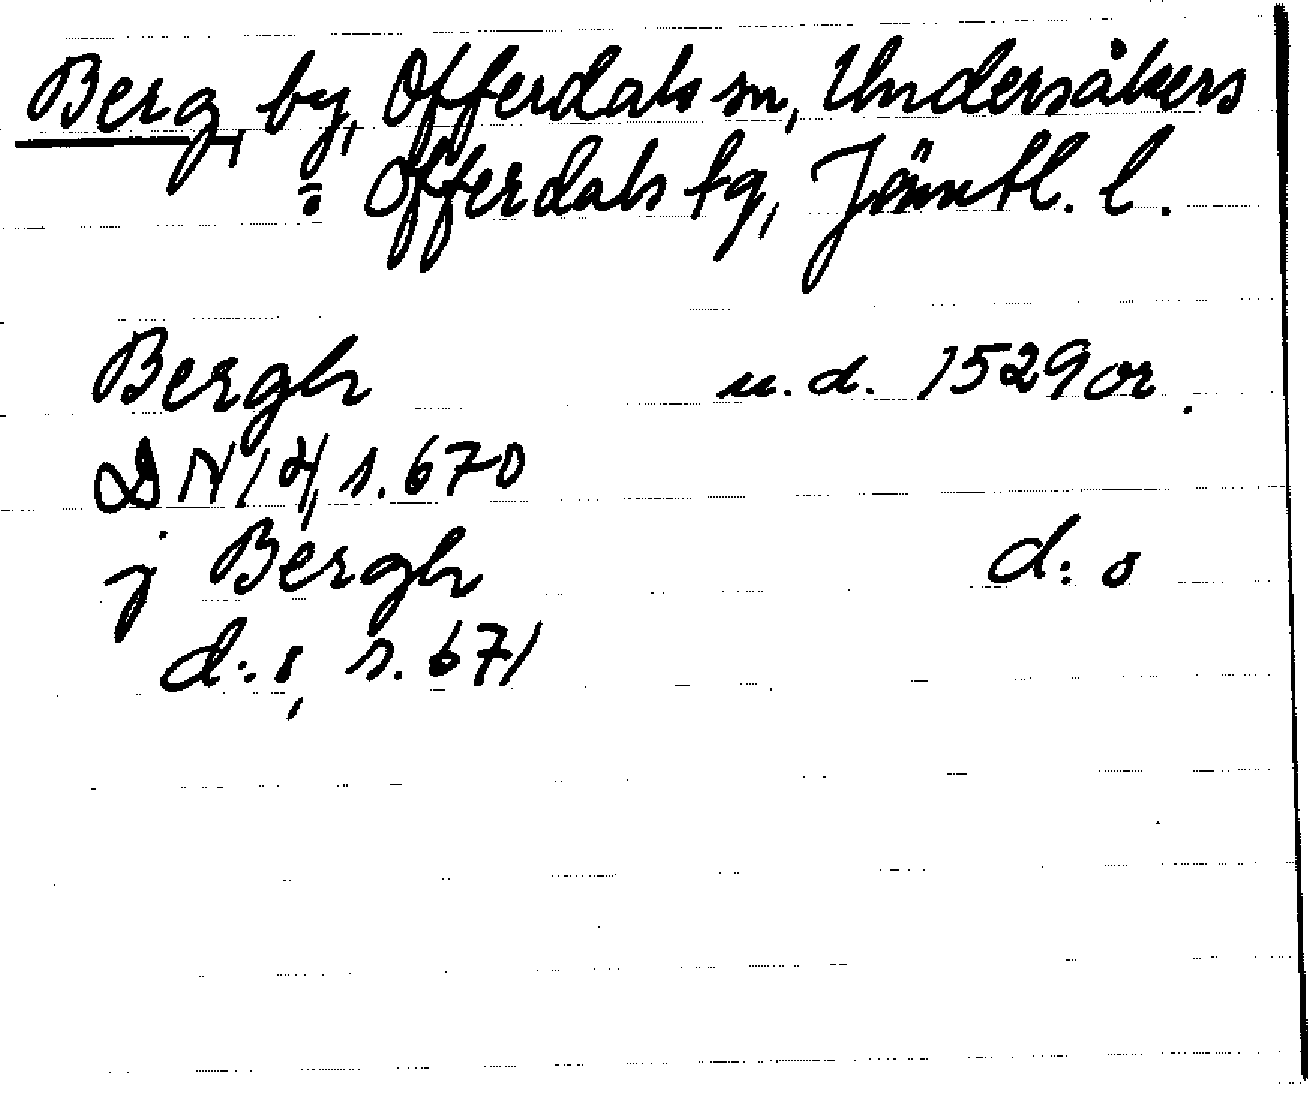 Berg, by, Offerdals sn, Undersåkers
o Offerdals tg, Jämtl. l.
Bergh u.d. 1529 or.
DN 14, s. 670
j Bergh d:o
d:o, s. 671